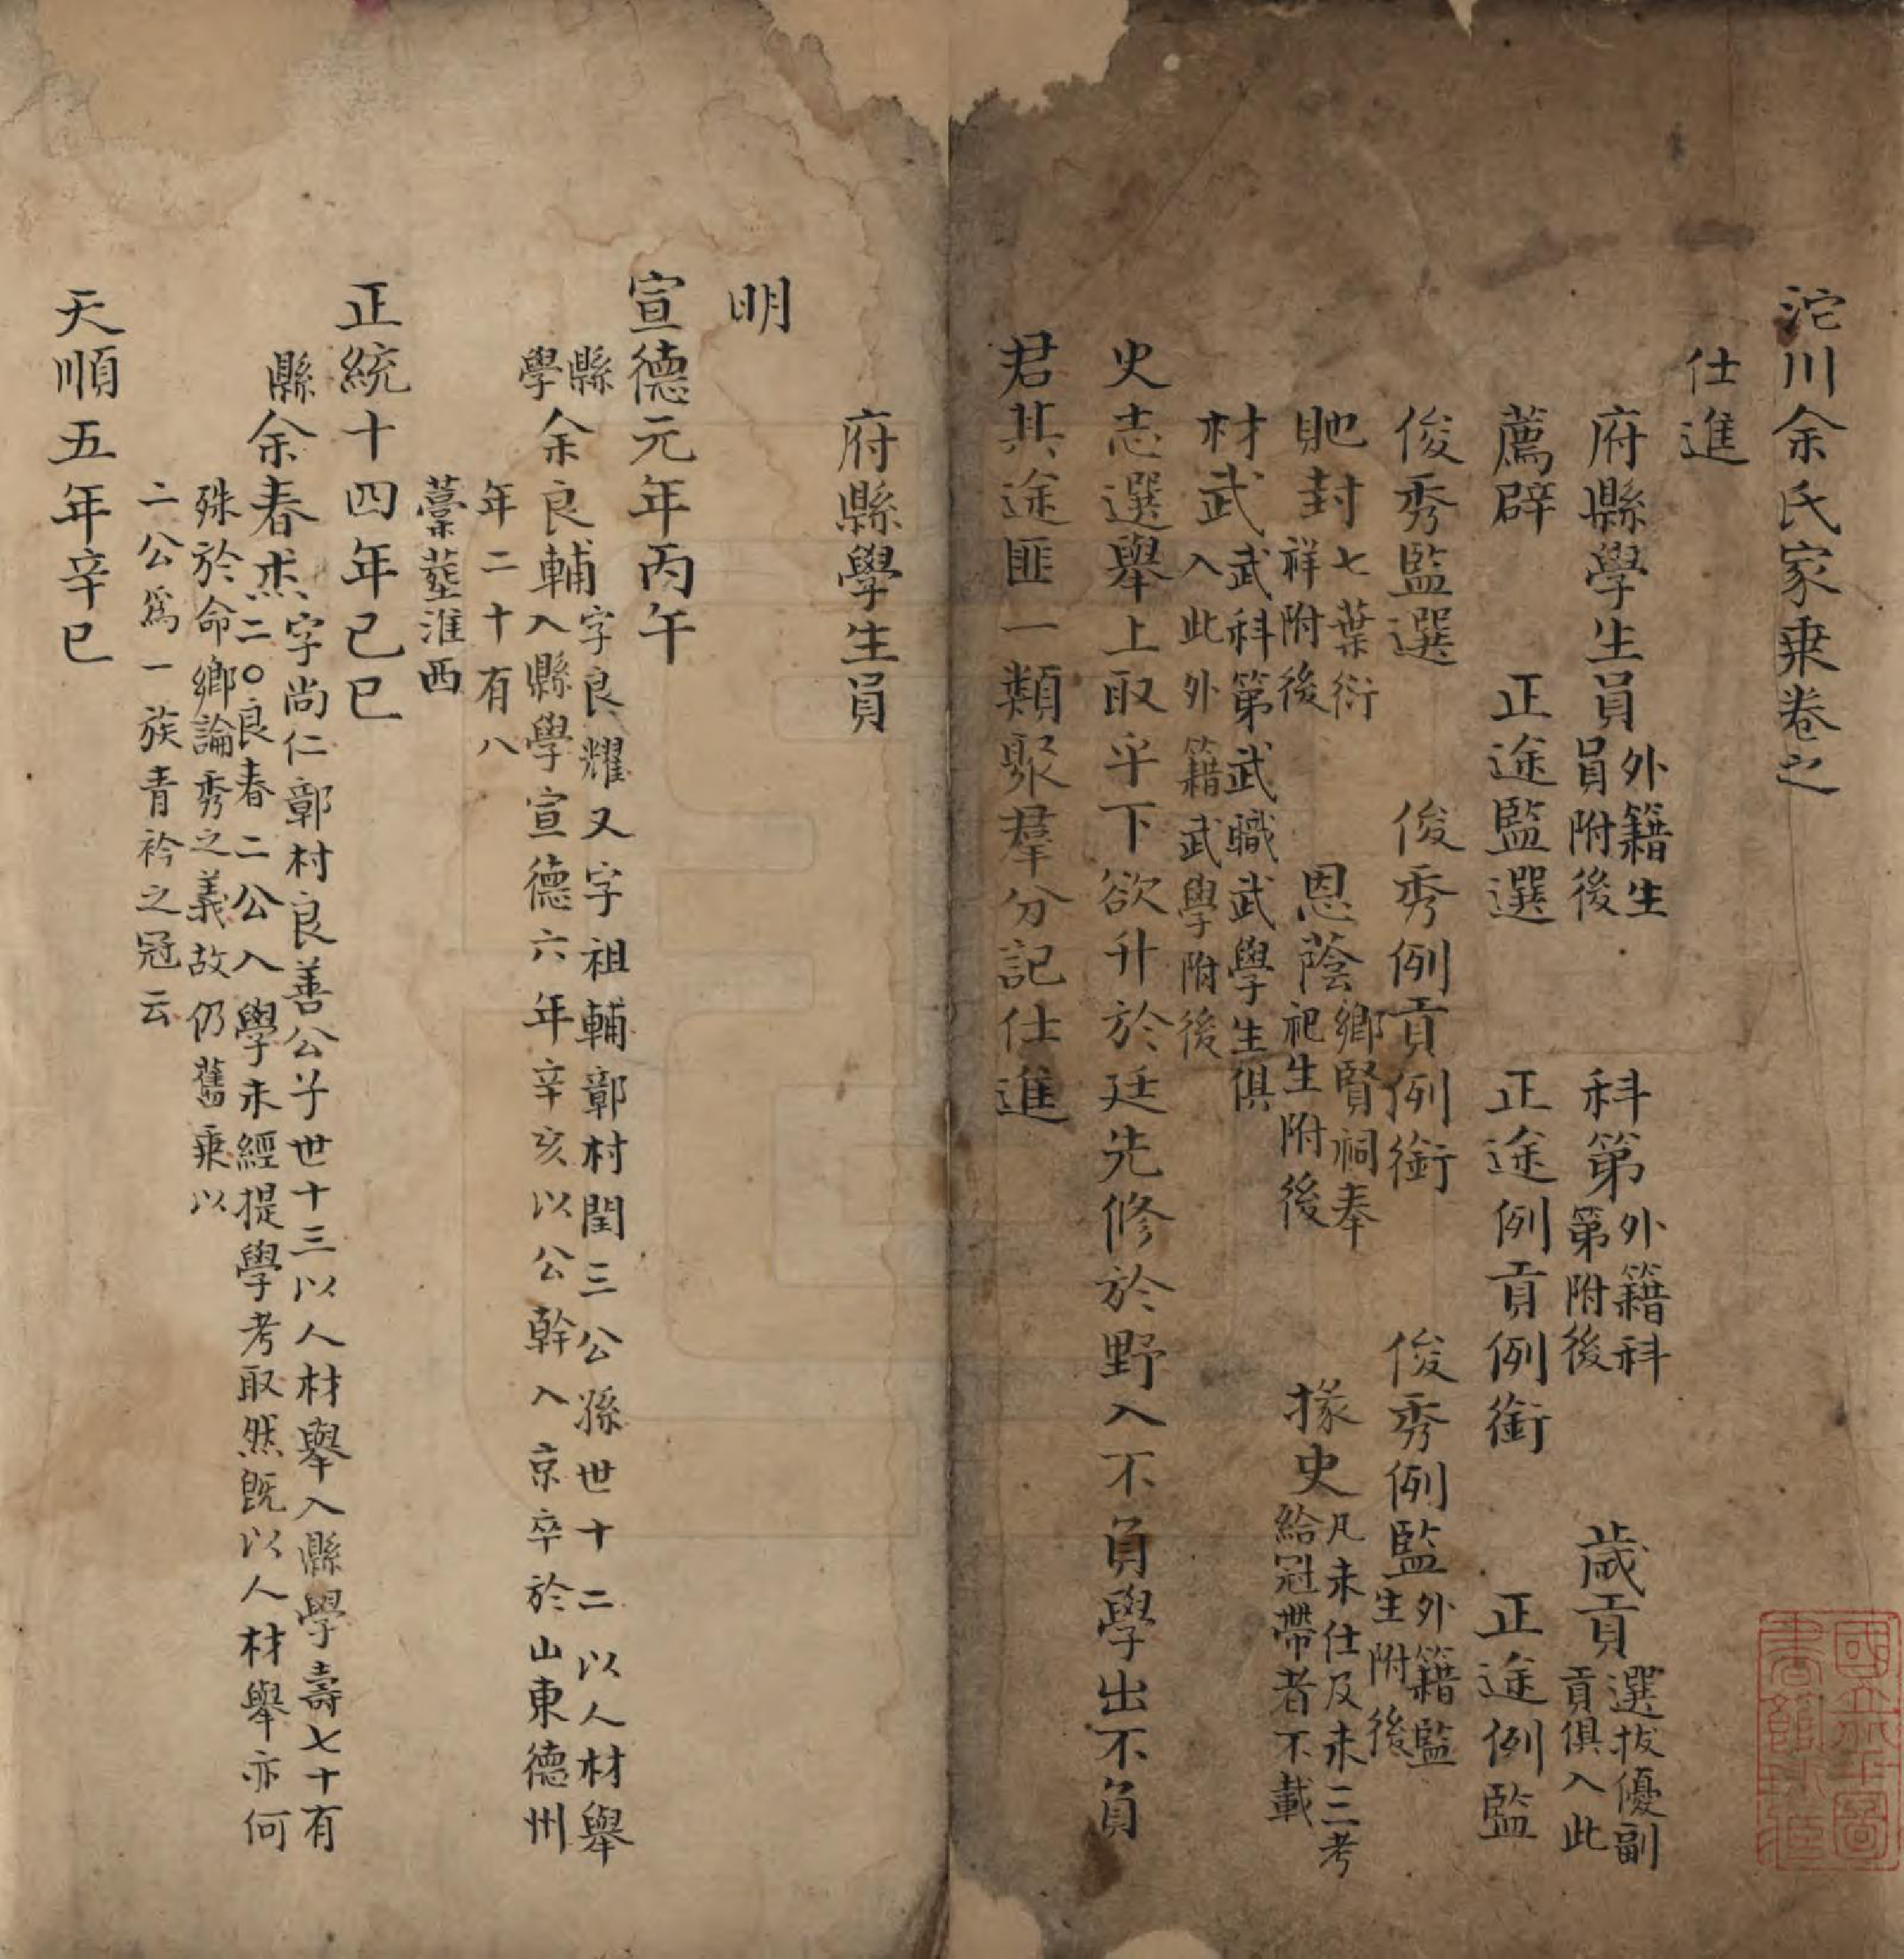 沱川余氏家乘卷之
仕進
府縣學生員外籍生員附後 科第外籍科第附後 歲貢選拔優副貢俱入此
薦辟 正途監選 正途例貢例銜 正途例監
俊秀監選 俊秀例貢例銜 俊秀例監外籍監生附後
貤封七葉衍祥附後 恩蔭鄉賢祠奉祀生附後 掾史凡未仕及未三考給冠帶者不載
材武武科第武職武學生俱入此外籍武學附後
史志選舉上取乎下欲升於廷先修於野入不負學出不負
君其途匪一類聚羣分記仕進
府縣學生員
明
宣德元年丙午
縣學余良輔字良耀又字祖輔鄣村閏三公孫世十二以人材舉
入縣學宣德六年辛亥以公幹入京卒於山東德州
年二十有八
藳塟淮西
正統十四年己巳
縣余春杰字尚仁鄣村良善公子世十三以人材舉入縣學壽七十有
二○良春二公入學未經提學考取然既以人材舉亦何
殊於命鄉論秀之義故仍舊乘以
二公爲一族青衿之冠云
天順五年辛巳
國立北平圖書館收藏